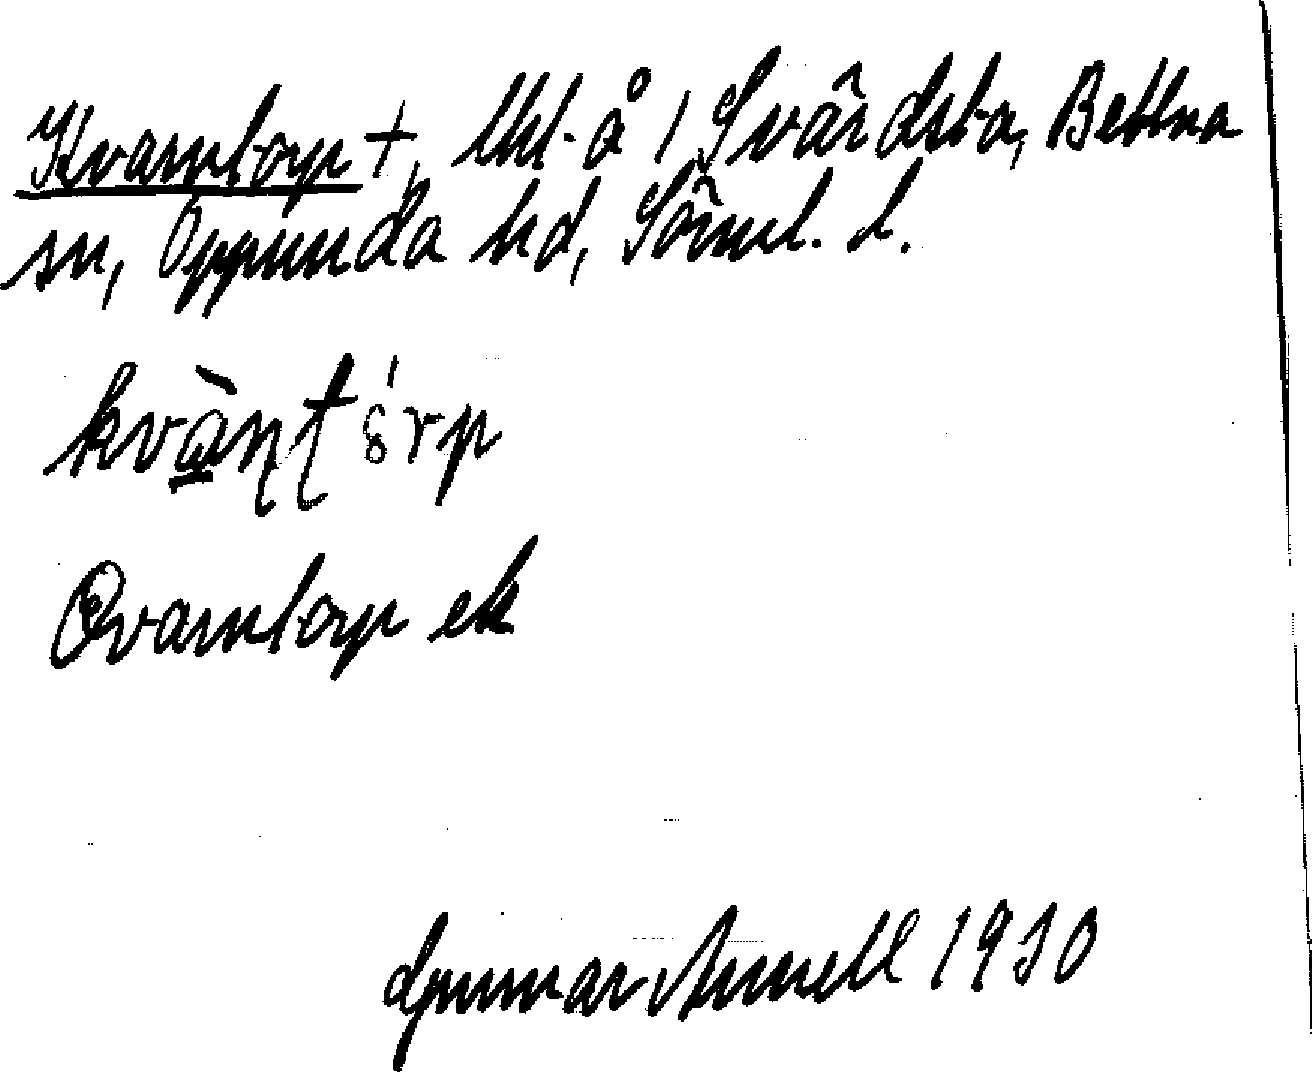 Kvarntorp +, tht. å 1 Svärdsta, Bettna
sn, Oppunda hd, Söml. l.
kvàṇʈ órp
Qvarntorp ek
Gunnar Arnell 1930